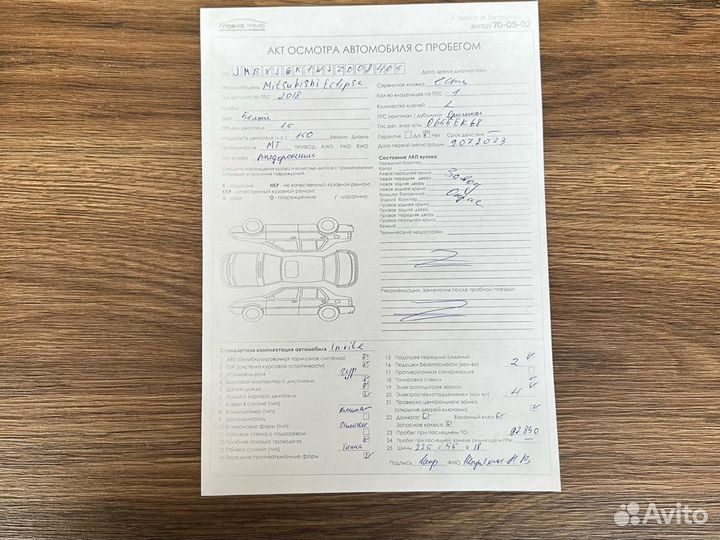 ГЛОБУС ТРЕЙД
8(4752)70-05-02
АКТ ОСМОТРА АВТОМОБИЛЯ С ПРОБЕГОМ
Дата, время диагностики
Mitsubishi Eclipse
Сервисная книжка есть
Год выпуска по ПТС 2018
Кол-во владельцев по ПТС 1
Количество ключей
Цвет Белый
ПТС оригинал / дубликат Оригинал
Объем двигателя 1.5
Гос. рег. знак а/м
Мощность двигателя (л.с.) 150 Бензин Дизель
Гарантия Да Нет Срок действия
Трансмиссия МТ ПРИВОД: AWD FWD RWD
Дата первой регистрации
Тип кузова Внедорожник
Состояние ЛКП кузова
Передний бампер
Опишите повреждения кузова и колесных дисков с применением
Капот
Левое переднее крыло Завод
Левая передняя дверь
К - коррозия НКР - не качественный кузовной ремонт
Левая задняя дверь
КР - качественный кузовной ремонт
Левое заднее крыло
Крышка багажника Окрас
В - скол О - повреждение / - царапина
Задний бампер
Правое заднее крыло
Правая задняя дверь
Правая передняя дверь
Правое переднее крыло
Крыша
Технические недостатки:
Рекомендации, замечания после пробной поездки:
Стандартная комплектация автомобиля Invite
1 ABS (антиблокировочная тормозная система)
2 ESP (система курсовой устойчивости)
3 Усилитель руля
4 Бортовой компьютер с дисплеем
5 Датчик дождя
6 Защита картера двигателя
7 Коврики в салоне (тип)
8 Кондиционер (тип) климат
9 Круиз-контроль
11 Лобовое стекло с подогревом
12 Пробная поездка проведена
13 Обивка салона (тип) ткань
14 Передние противотуманные фары
15 Подогрев передних сидений
16 Подушки безопасности (кол-во) 2
17 Противоугонная сигнализация
18 Тонировка стекол
19 Электроподогрев зеркал
20 Электростеклоподъемники (кол-во) 4
21 Проверка центрального замка
(открытие дверей ключами)
22 Домкрат Балонный ключ
Запасное колесо
23 Пробег при последнем ТО
24 Пробег при последней замене ремня/цепи ГРМ
25 Шины 225 : 55 R 18
Подпись ФИО
Avito